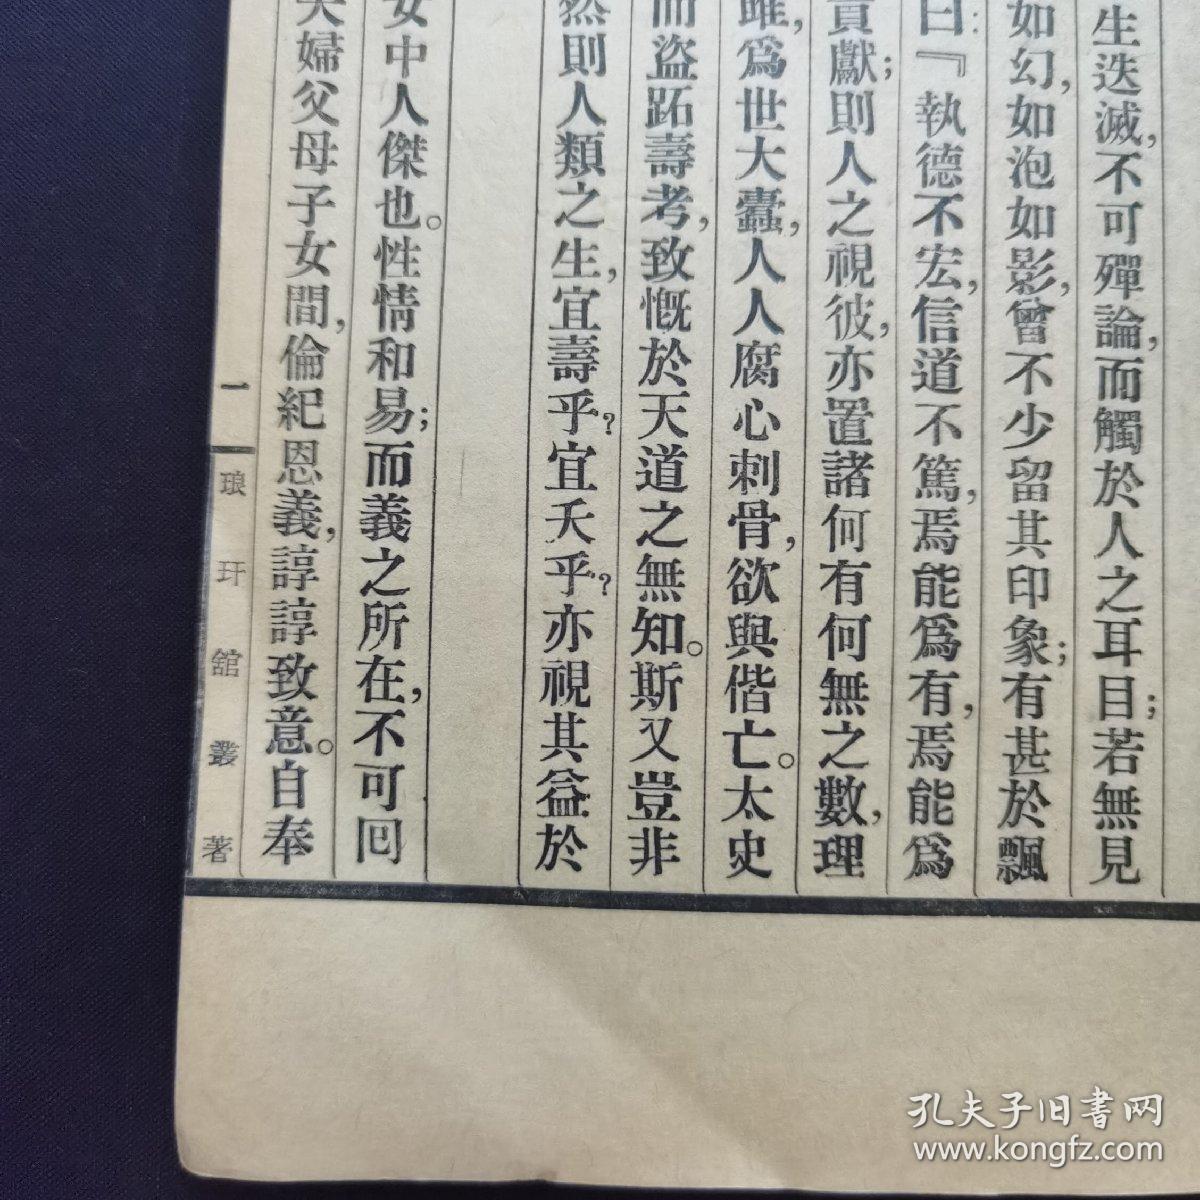 生迭滅，不可殫論，而觸於人之耳目；若無見
如幻，如泡如影，曾不少留其印象；有甚於飄
曰：『執德不宏，信道不篤，焉能爲有，焉能爲
貢獻；則人之視彼，亦置諸何有何無之數，理
雎，爲世大蠹，人人腐心刺骨，欲與偕亡。太史
而盜跖壽考，致慨於天道之無知。斯又豈非
然則人類之生，宜壽乎？宜夭乎？亦視其益於
女中人傑也。性情和易；而義之所在，不可囘
夫婦父母子女間，倫紀恩義，諄諄致意。自奉
一
琅玕舘叢著
孔夫子旧书网
www.kongfz.com